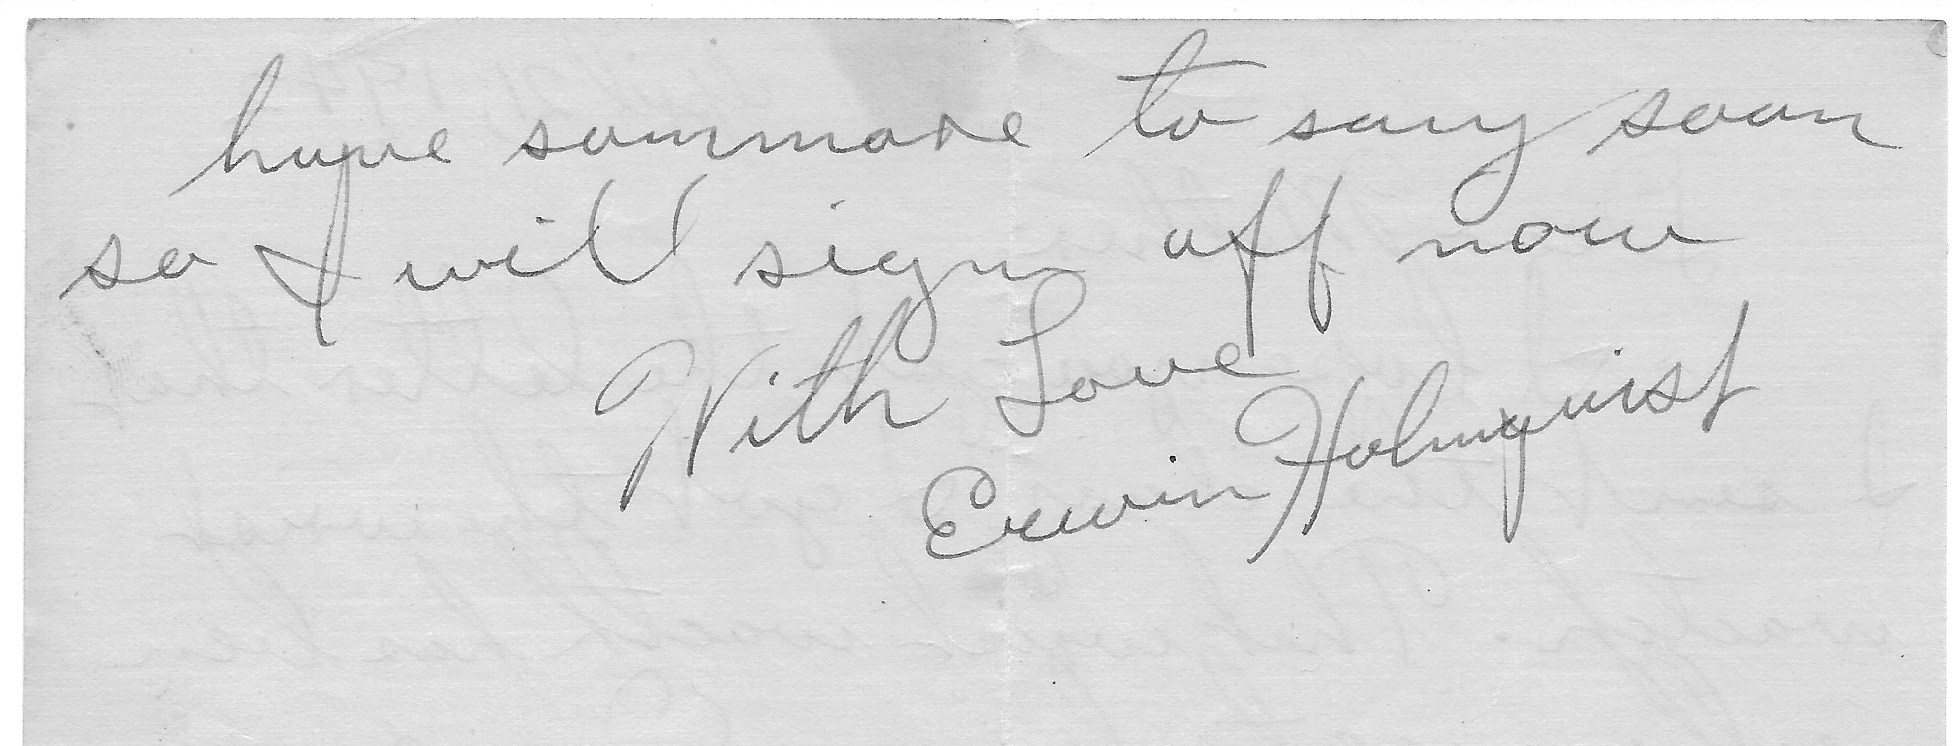 hope sommore to say soon
so I will sign off now
With Love
Erwin Holmquist